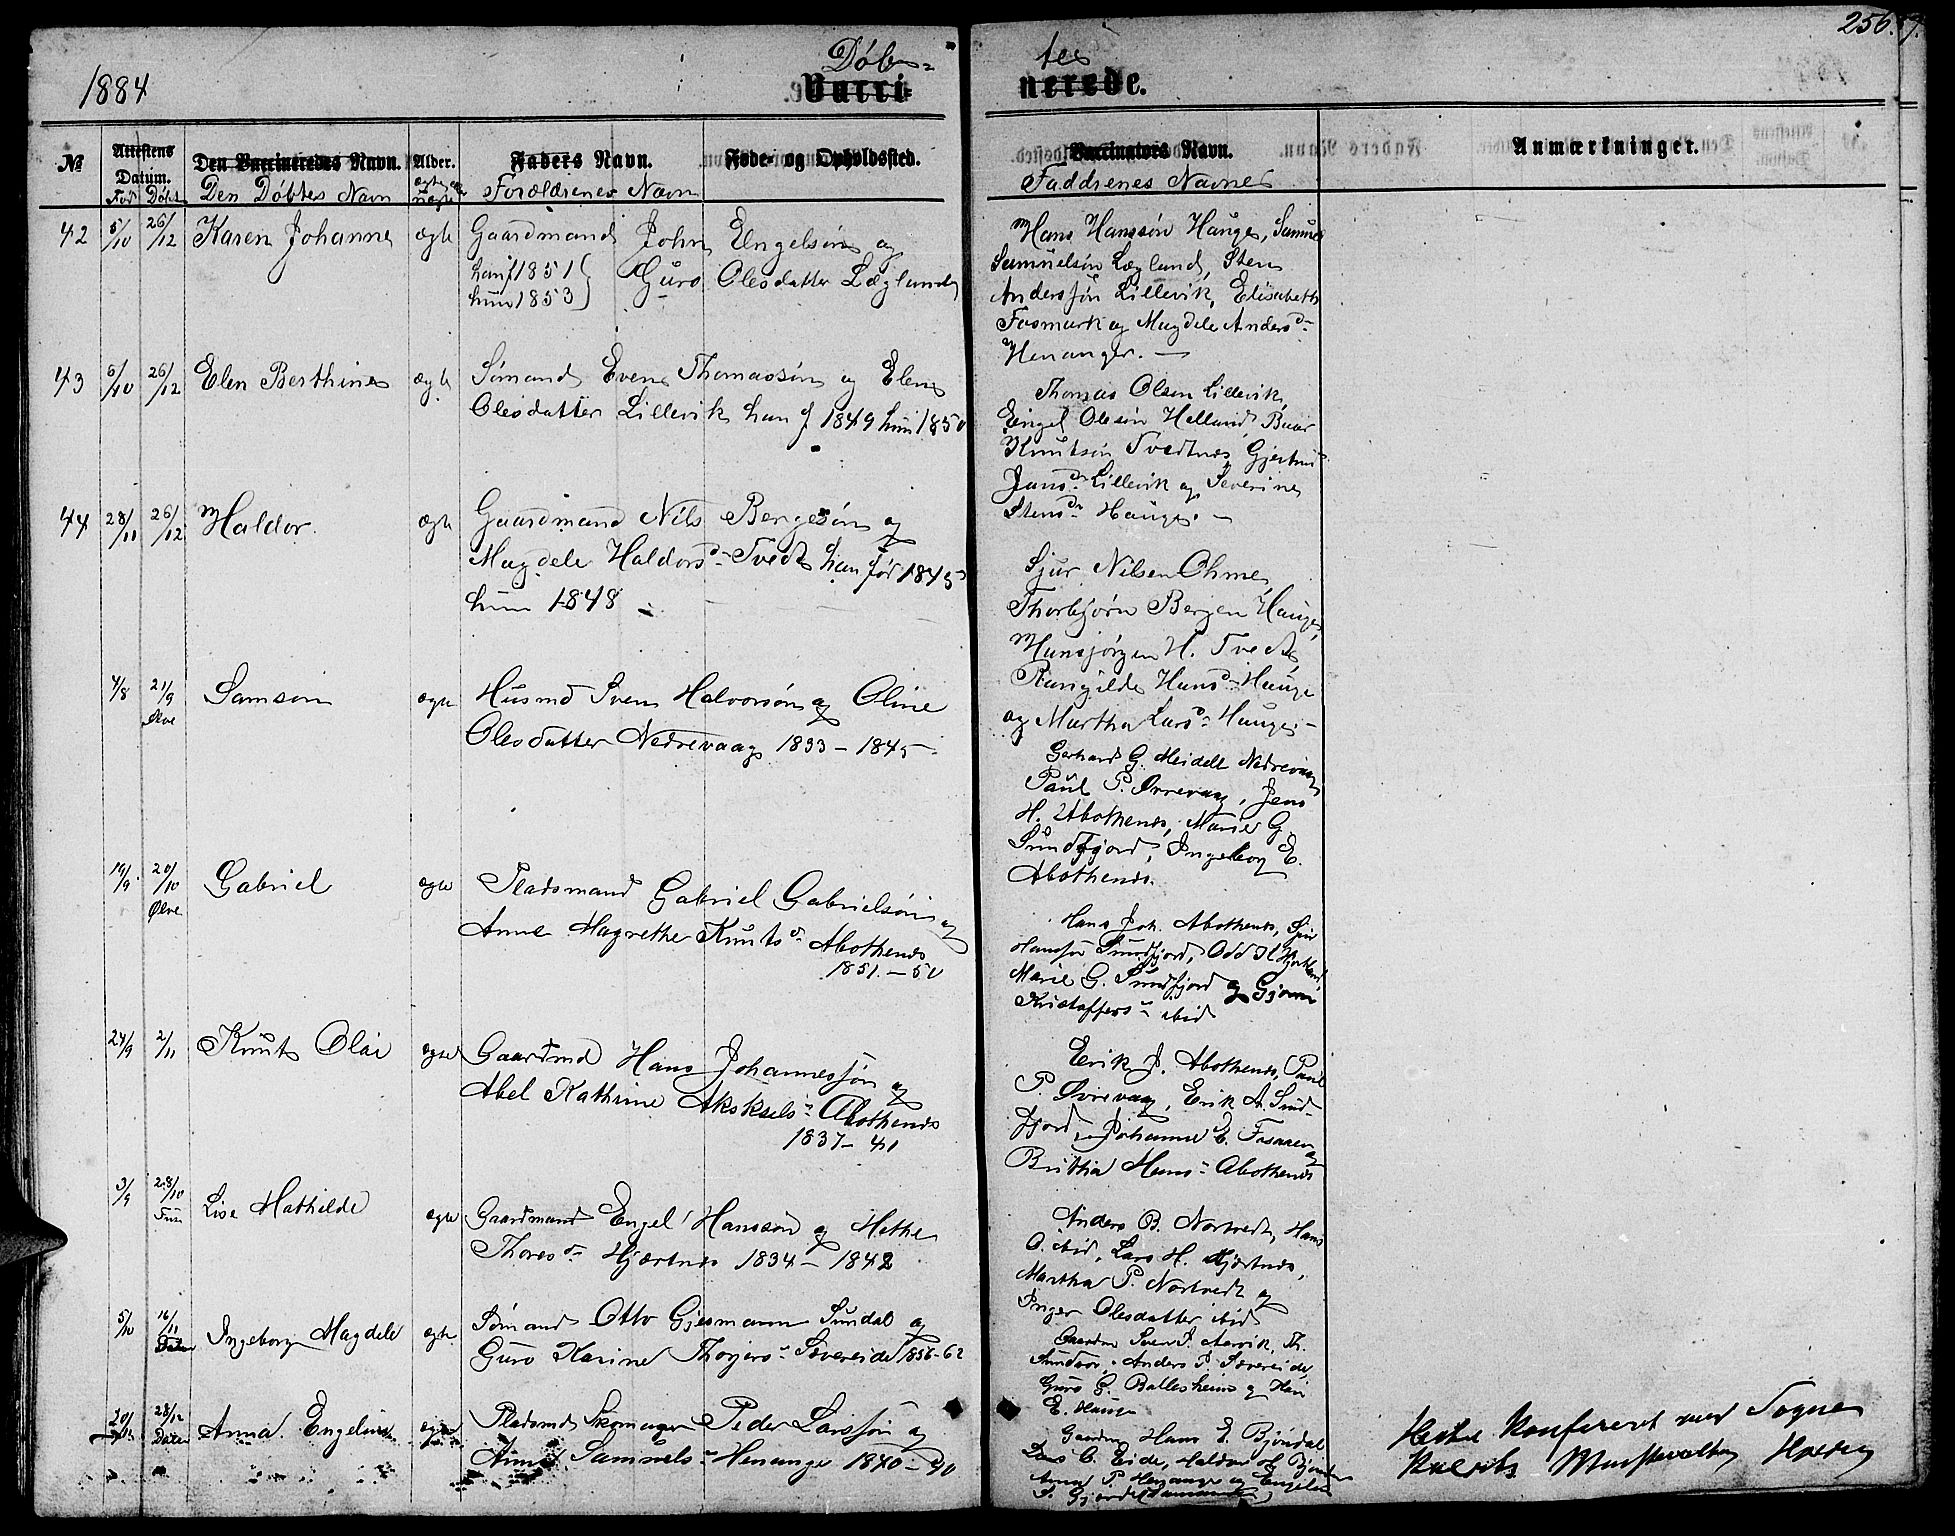 256.
1884
Døb= tes
Vacci= nerede.
№
Attestens Datum.
Fød Døbt
Den Vaccineredes Navn.
Den Døbtes Navn
Alder.
ægte
uægte
Faders Navn.
Forældrenes Navn
Føde- og Opholdssted.
Vaccinators Navn.
Faddrenes Navne
Anmærkninger.
42 5/10 26/12 Karen Johanne ægte Gaardmand John Engelsøn og
han f 1851 } Guro Olesdatter Læglund
hun 1853 }
Hans Hanssøn Hauge, Samuel
Samuelsøn Lægland, Sten
Anderssøn Lillevik, Elisabeth
Fosmark og Magdele Andersd.
Henanger. —
43 6/10 26/12 Elen Berthine ægte Sømand Even Thomassøn og Elen
Olesdatter Lillevik han f 1849 hun 1850
Thomas Olsen Lillevik,
Engel Olesøn Helland, Baar
Knutsøn Tvedtnes, Gjertrud
Jansd. Lillevik og Severine
Stensd. Hauge. —
44 28/11 26/12 Haldor. ægte Gaardmand Nils Bergesøn og
Magdele Haldorsd. Tvedt han før 1845
hun 1848
Sjur Nilsen Ohme,
Thorbjørn Bergen Hauge,
Mansjørgen H. Tvedt,
Rangilde Hansd. Hauge
og Martha Larsd. Hauge. —
4/8 21/9 Ølve Samson ægte Husmd Sven Halvorsøn og Oline
Olesdatter Nedrevaag 1833 – 1845
Gerhard G. Meidell Nedrevaag
Paul P. Øvrevaag, Jens
H. Abothens, Marie G.
Sundfjord, Ingeborg E.
Abothens.
19/9 20/10 Ølve Gabriel ægte Pladsmand Gabriel Gabrielsøn og
Anne Magrethe Knutsd. Abothens
1851. – 50
Hans Joh. Abothens, Sjur
Hanssøn Sundfjord, Odd H
Marie G. Sundfjord og
Kristoffersd. ibid
24/9 2/11 Knut Olai ægte Gaardmd Hans Johannessøn og
Abel Kathrine Aksksels Abothens
1837 – 41
Erik J. Abothens, Paul
P. Øvrevaag, Erik A. Sund-
fjord, Johanne E. og
Brithia Hans Abothens
3/9 28/10 Fuse Lise Mathilde ægte Gaardmand Engel Hansson og Methe
Thoresd. Hjærtnes 1834 – 1842
Anders B. Nortvedt, Hans
O. ibid, Lars H. Hjertnes,
Martha P. Nortvedt og
Inger Olesdatter ibid
5/10 16/11 Ingeborg Magdele ægte Sømand Otto Gjesmann Sundal og
Guro Karine Thorgers Sævereide 1856 – 62
Sven J. Aarvik, Th.
Sundvor, Anders P. Sævereide,
Guro G. Ballesheim og
E. Hauge
28/12 Anna Engeline ægte Pladsmd Skomager Peder Larssøn og
Anne Samuels Henanger 1840 – 40
Gaardm Hans E. Bjøndal
Lars O. Eide, Haldor H.
Anna P. Henanger og Engeline
Hertil Konfereret med Sogne
Holden